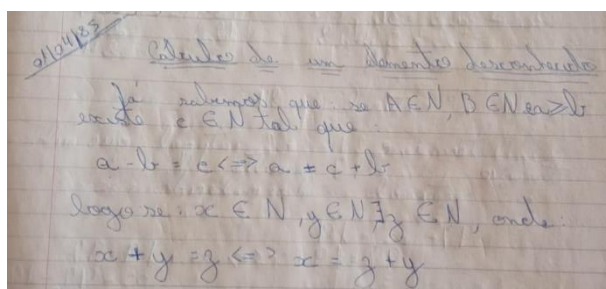 01/04/83
Cálculo de um elemento desconhecido
Já sabemos que: se A ∈ N, B ∈ N e a ≥ b
existe c ∈ N tal que:
a - b = c <=> a = c + b
logo se: x ∈ N, y ∈ N ∃ z ∈ N, onde:
x + y = z <=> x = z + y